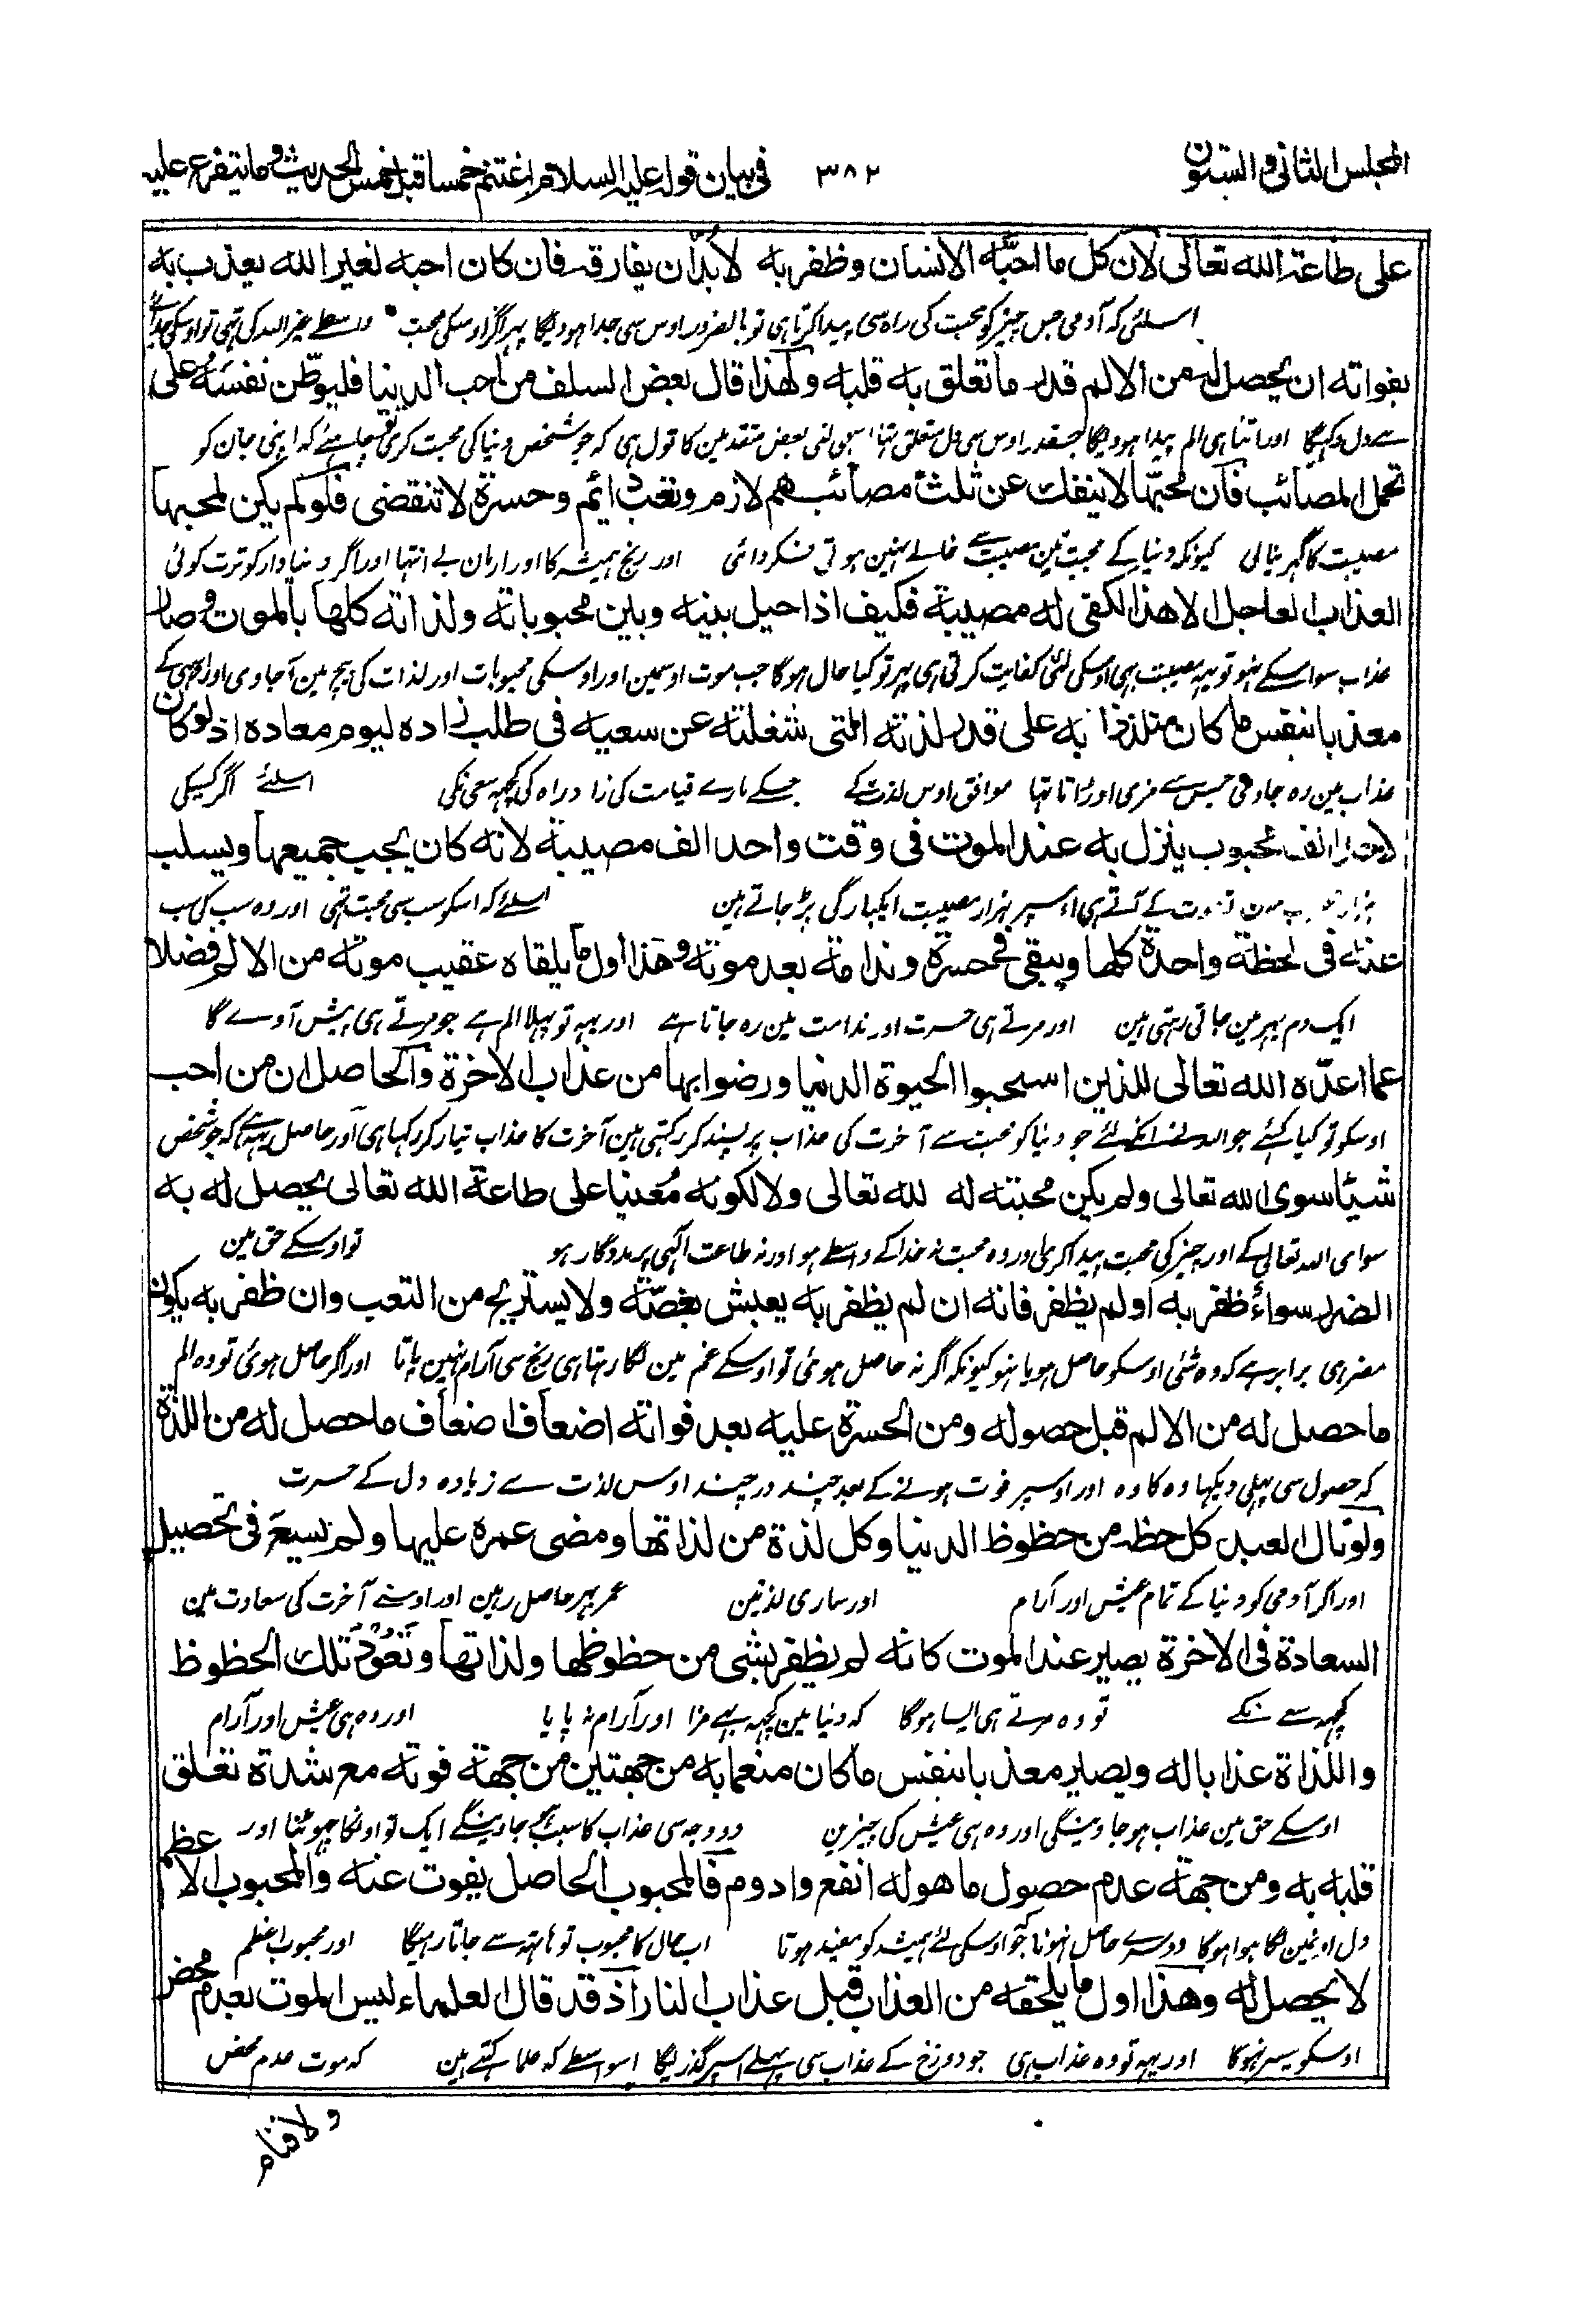 المجلس الثانی و الستون ۳۸۲ فی بیان قوله علیه السلام اغتنم خمسا قبل خمس الحدیث و ما یتفرع علیه
علی طاعة الله تعالی لان کل ما احبّه الانسان وظفر به لا بدّ ان یفارقه فان کان احبه لغیر الله یعذب به
اسلئی که آدمی جس چیز کو محبت کی راه سی پیدا کرتا ہی تو بالضرور اوس سی جدا ہوویگا پہر اگر اوسکی محبت واسطے غیر اللہ کی تہی تو اوسکی
بفواته ان یحصل له من الالم قدر ما تعلق به قلبه ولهذا قال بعض السلف من احب الدنیا فلیوطّن نفسه علی
سے دل دکہیگا اور اتنا ہی الم پیدا ہوویگا جسقدر اوس سی دل متعلق تہا اسی لئی بعض متقدمین کا قول ہی کہ جو شخص دنیا کی محبت کری تو چاہئے کہ اپنی جان کو
تحمل المصائب فان محبّها لا ینفك عن ثلث مصائب هم لازم وتعب دائم وحسرة لا تنقضی فلو لم یکن لمحبها
مصیبت کا گہر بنالی کیونکہ دنیا کے محبت تین مصیبت سے خالے نہین ہوتی فکر دائمی اور رنج ہمیشہ کا اور ارمان بے انتہا اور اگر دنیادار کو ترت کوئی
العذاب العاجل الا هذا لکفی له مصیبة فکیف اذا حیل بینه وبین محبوباته ولذاته کلها بالموت وصار
عذاب سوا اسکے نہو تو یہہ مصیبت ہی اوسکی لئی کفایت کرتی ہی پہر تو کیا حال ہوگا جب موت اوسمین اور اوسکی محبوبات اور لذات کی بیچ مین آجاوی اور اوسی کے
معذبا بنفس ما کان متلذذا به علی قدر لذته التی شغلته عن سعیه فی طلب زاده لیوم معاده اذ لو کان
عذاب مین رہ جاوی جس سے مزی اوڑاتا تہا موافق اوس لذت کے جسکے مارے قیامت کی زاد راہ کی کچہہ سعی نکی اسلئے اگر کسیکی
الف محبوب ینزل به عند الموت فی وقت واحد الف مصیبة لانه کان یحب جمیعها ویسلب
ہزار موت کے آتے ہی اوسپر ہزار مصیبت ایکبارگی پڑ جاتے ہین اسلئے کہ اسکو سب سی محبت تہی اور وہ سب کی سب
عنه فی لحظة واحدة کلها ویبقی فی حسرة وندامة بعد موته وهذا اول ما یلقاه عقیب موته من الالم فضلا
ایک دم بہر مین جاتی رہتی ہین اور مرتے ہی حسرت اور ندامت مین رہ جاتا ہے اور یہہ تو پہلا الم ہے جو مرتے ہی پیش آوے گا
عما اعدّه الله تعالی للذین استحبوا الحیوة الدنیا ورضوا بها من عذاب الاخرة والحاصل ان من احب
اوسکو تو کیا کہئے جو اللہ نے انکے لئے جو دنیا کو محبت سے آخرت کی عذاب پر پسند کر رکہتی ہین آخرت کا عذاب تیار کر رکہا ہی اور حاصل یہہ ہے کہ جو شخص
شیئا سوی الله تعالی ولم یکن محبته له لله تعالی ولا لکونه معینا علی طاعة الله تعالی یحصل له به
سوای اللہ تعالی کے اور چیز کی محبت پیدا کری اور وہ محبت نہ خدا کے واسطے ہو اور نہ طاعت الہی پر مددگار ہو تو اوسکے حق مین
الضرر سواء ظفر به او لم یظفر فانه ان لم یظفر به یعیش بغصّته ولا یستریح من التعب وان ظفر به یکون
مضر ہی برابر ہے کہ وہ شئی اوسکو حاصل ہو یا نہو کیونکہ اگر نہ حاصل ہوئی تو اوسکے غم مین لگا رہتا ہی رنج سی آرام نہین پاتا اور اگر حاصل ہوئی تو وہ الم
ما حصل له من الالم قبل حصوله ومن الحسرة علیه بعد فواته اضعاف اضعاف ما حصل له من اللذة
کہ حصول سی پہلی دیکہا وہ کا وہ اور اوسپر فوت ہونے کے بعد چند در چند اوس لذت سے زیادہ دل کے حسرت
ولو نال العبد کل حظ من حظوظ الدنیا وکل لذة من لذاتها ومضی عمره علیها ولم یسع فی تحصیل
اور اگر آدمی کو دنیا کے تمام عیش اور آرام اور ساری لذتین عمر بہر حاصل رہین اور اوسنے آخرت کی سعادت مین
السعادة فی الاخرة یصیر عند الموت کانه لم یظفر بشی من حظوظها ولذاتها وتعود تلك الحظوظ
کچہہ سے نکے تو وہ مرتے ہی ایسا ہوگا کہ دنیا مین کچہہ بہے مزا اور آرام نہ پایا اور وہ ہی عیش اور آرام
واللذاة عذابا له ویصیر معذبا بنفس ما کان منعما به من جهتین من جهة فوته مع شدة تعلق
اوسکے حق مین عذاب ہو جاوینگی اور وہ ہی عیش کی چیزین دو وجہ سی عذاب کا سبب ہو جاوینگے ایک تو اونکا چہوٹنا اور
قلبه به ومن جهة عدم حصول ما هو له انفع وادوم فالمحبوب الحاصل یفوت عنه والمحبوب الاعظم
دل اونمین لگا ہوا ہوگا دوسرے حاصل نہونا جو اوسکی لئے ہمیشہ کو مفید ہوتا اب حال کا محبوب تو ہاتہہ سے جاتا رہیگا اور محبوب اعظم
لا یحصل له وهذا اول ما یلحقه من العذاب قبل عذاب النار اذ قد قال العلماء لیس الموت بعدم محض
اوسکو میسر نہوگا اور یہہ تو وہ عذاب ہی جو دوزخ کے عذاب سی پہلے اسپر گذریگا اسواسطے کہ علما کہتے ہین کہ موت عدم محض
ولا فناء